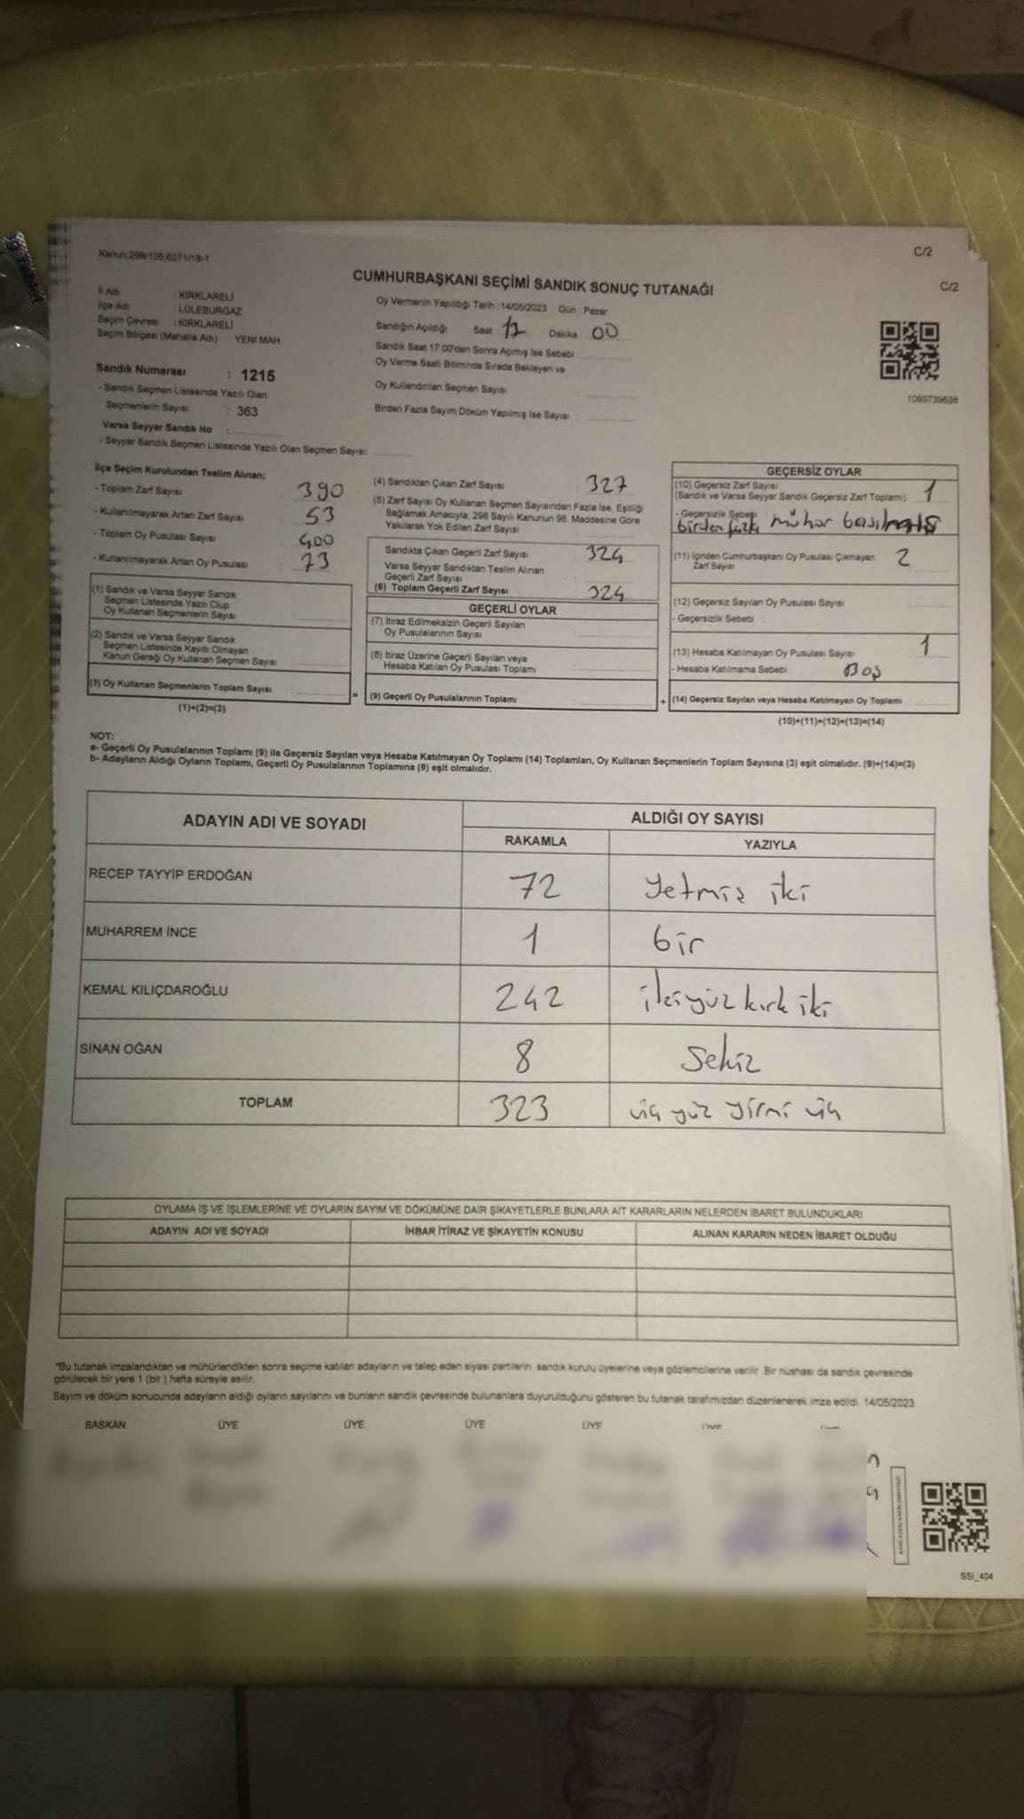 Kanun:298/105,6271/18-1
C/2
C/2
CUMHURBAŞKANI SEÇİMİ SANDIK SONUÇ TUTANAĞI
İl Adı : KIRKLARELİ
İlçe Adı : LÜLEBURGAZ
Seçim Çevresi : KIRKLARELİ
Seçim Bölgesi (Mahalle Adı) YENİ MAH
Oy Vermenin Yapıldığı Tarih :14/05/2023 Gün : Pazar
Sandığın Açıldığı Saat 17 Dakika 00
Sandık Saat 17:00'den Sonra Açılmış İse Sebebi
Oy Verme Saati Bitiminde Sırada Bekleyen ve
Oy Kullandırılan Seçmen Sayısı
Birden Fazla Sayım Döküm Yapılmış İse Sayısı :
1093739638
Sandık Numarası : 1215
- Sandık Seçmen Listesinde Yazılı Olan
Seçmenlerin Sayısı : 363
Varsa Seyyar Sandık No :
- Seyyar Sandık Seçmen Listesinde Yazılı Olan Seçmen Sayısı:
İlçe Seçim Kurulundan Teslim Alınan:
- Toplam Zarf Sayısı 390
- Kullanılmayarak Artan Zarf Sayısı 53
- Toplam Oy Pusulası Sayısı 400
- Kullanılmayarak Artan Oy Pusulası 73
(1) Sandık ve Varsa Seyyar Sandık
Seçmen Listesinde Yazılı Olup
Oy Kullanan Seçmenlerin Sayısı
(2) Sandık ve Varsa Seyyar Sandık
Seçmen Listesinde Kayıtlı Olmayan
Kanun Gereği Oy Kullanan Seçmen Sayısı
(3) Oy Kullanan Seçmenlerin Toplam Sayısı
(1)+(2)=(3)
(4) Sandıktan Çıkan Zarf Sayısı : 327
(5) Zarf Sayısı Oy Kullanan Seçmen Sayısından Fazla İse, Eşitliği
Sağlamak Amacıyla, 298 Sayılı Kanunun 98. Maddesine Göre
Yakılarak Yok Edilen Zarf Sayısı
Sandıkta Çıkan Geçerli Zarf Sayısı 324
Varsa Seyyar Sandıktan Teslim Alınan
Geçerli Zarf Sayısı
(6) Toplam Geçerli Zarf Sayısı 324
GEÇERLİ OYLAR
(7) İtiraz Edilmeksizin Geçerli Sayılan
Oy Pusulalarının Sayısı
(8) İtiraz Üzerine Geçerli Sayılan veya
Hesaba Katılan Oy Pusulası Toplamı
= (9) Geçerli Oy Pusulalarının Toplamı
GEÇERSİZ OYLAR
(10) Geçersiz Zarf Sayısı
(Sandık ve Varsa Seyyar Sandık Geçersiz Zarf Toplamı) 1
- Geçersizlik Sebebi
birden fazla mühür basılması
(11) İçinden Cumhurbaşkanı Oy Pusulası Çıkmayan
Zarf Sayısı 2
(12) Geçersiz Sayılan Oy Pusulası Sayısı
- Geçersizlik Sebebi
(13) Hesaba Katılmayan Oy Pusulası Sayısı 1
- Hesaba Katılmama Sebebi Boş
+ (14) Geçersiz Sayılan veya Hesaba Katılmayan Oy Toplamı
(10)+(11)+(12)+(13)=(14)
NOT:
a- Geçerli Oy Pusulalarının Toplamı (9) ile Geçersiz Sayılan veya Hesaba Katılmayan Oy Toplamı (14) Toplamları, Oy Kullanan Seçmenlerin Toplam Sayısına (3) eşit olmalıdır. (9)+(14)=(3)
b- Adayların Aldığı Oyların Toplamı, Geçerli Oy Pusulalarının Toplamına (9) eşit olmalıdır.
ADAYIN ADI VE SOYADI
ALDIĞI OY SAYISI
RAKAMLA YAZIYLA
RECEP TAYYİP ERDOĞAN 72 Yetmiş iki
MUHARREM İNCE 1 bir
KEMAL KILIÇDAROĞLU 242 ikiyüz kırk iki
SİNAN OĞAN 8 Sekiz
TOPLAM 323 üç yüz yirmi üç
OYLAMA İŞ VE İŞLEMLERİNE VE OYLARIN SAYIM VE DÖKÜMÜNE DAİR ŞİKAYETLERLE BUNLARA AİT KARARLARIN NELERDEN İBARET BULUNDUKLARI
ADAYIN ADI VE SOYADI İHBAR İTİRAZ VE ŞİKAYETİN KONUSU ALINAN KARARIN NEDEN İBARET OLDUĞU
*Bu tutanak imzalandıktan ve mühürlendikten sonra seçime katılan adayların ve talep eden siyasi partilerin sandık kurulu üyelerine veya gözlemcilerine verilir. Bir nüshası da sandık çevresinde
görülecek bir yere 1 (bir ) hafta süreyle asılır.
Sayım ve döküm sonucunda adayların aldığı oyların sayılarını ve bunların sandık çevresinde bulunanlara duyurulduğunu gösteren bu tutanak tarafımızdan düzenlenerek imza edildi. 14/05/2023
BAŞKAN ÜYE ÜYE ÜYE ÜYE ÜYE
SSİ_404